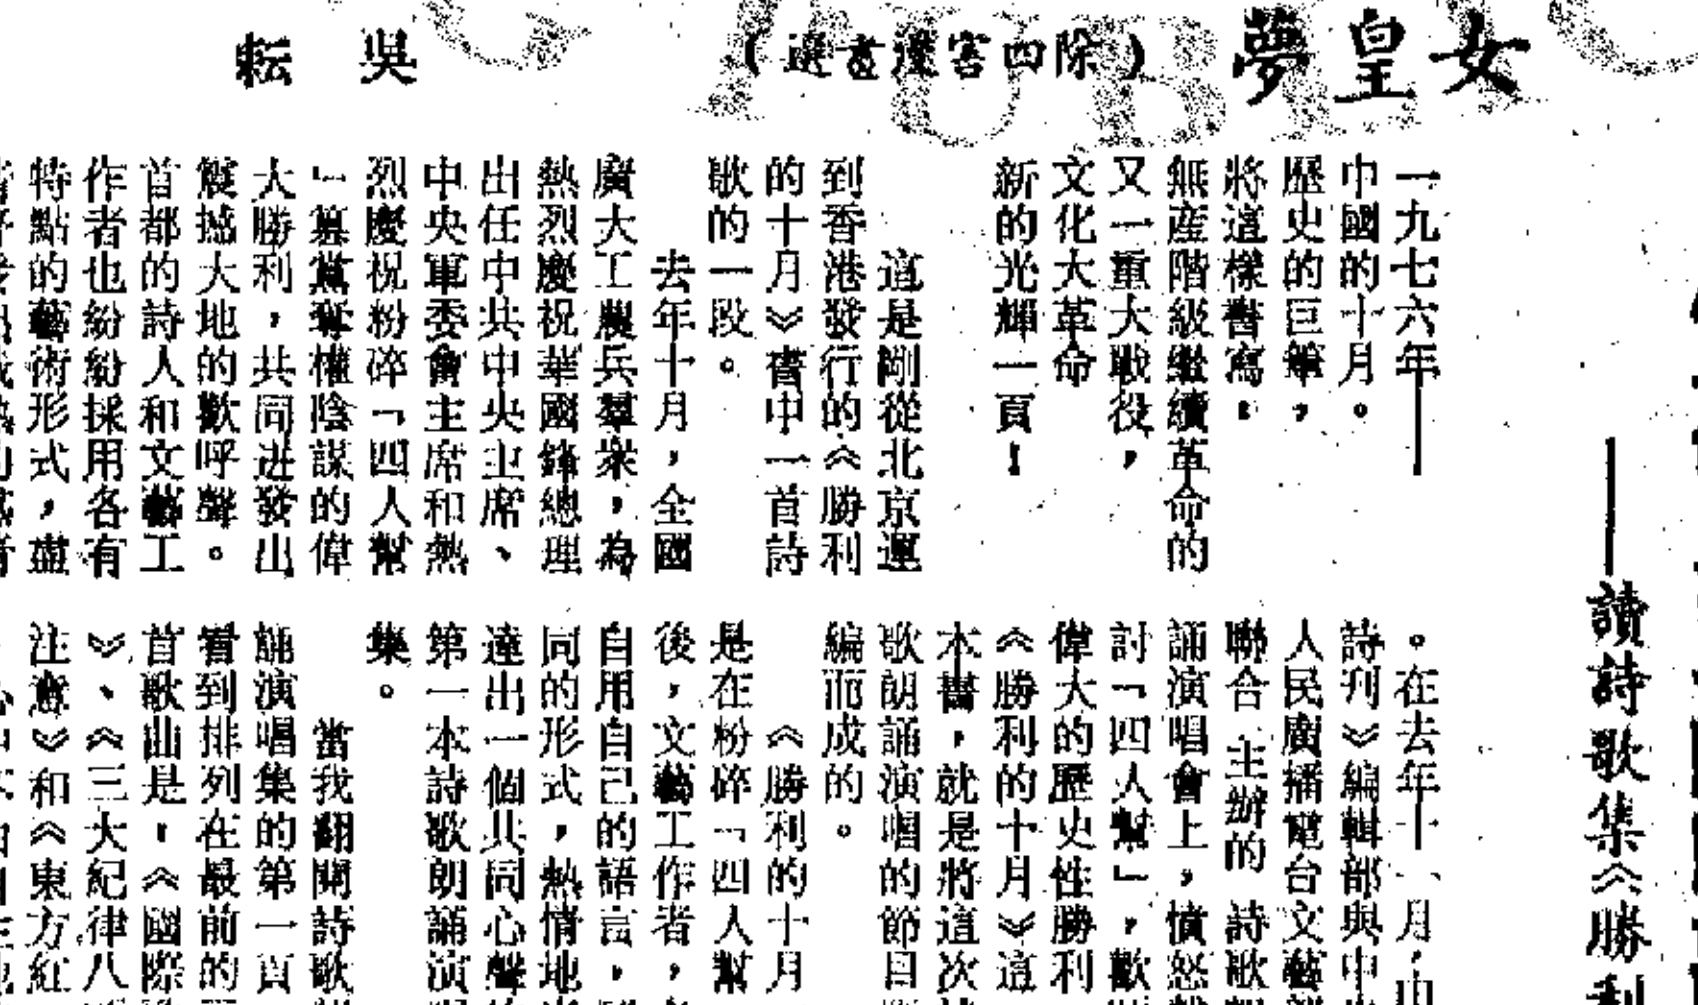 女皇夢
（除四害漫畫選）
吳耘
——讀詩歌集《勝利
一九七六年——
中國的十月。
歷史的巨筆，
將這樣書寫：
無産階級繼續革命的
又一重大戰役，
文化大革命
新的光輝一頁！
這是剛從北京運
到香港發行的《勝利
的十月》書中一首詩
歌的一段。
去年十月，全國
廣大工農兵羣衆，為
熱烈慶祝華國鋒總理
出任中共中央主席、
中央軍委會主席和熱
烈慶祝粉碎「四人幫
」篡黨奪權陰謀的偉
大勝利，共同迸發出
震撼大地的歡呼聲。
首都的詩人和文藝工
作者也紛紛採用各有
特點的藝術形式，盡
。在去年十一月，由
詩刊》編輯部與中央
人民廣播電台文藝部
聯合主辦的詩歌朗
誦演唱會上，憤怒聲
討「四人幫」，歡呼
偉大的歷史性勝利
《勝利的十月》這
本書，就是將這次詩
歌朗誦演唱的節目
編而成的。
《勝利的十月
是在粉碎「四人幫
後，文藝工作者，
自用自己的語言，
同的形式，熱情地
達出一個共同心聲
第一本詩歌朗誦演
集。
當我翻開詩歌
誦演唱集的第一頁
看到排列在最前的
首歌曲是：《國際
》、《三大紀律八
注意》和《東方紅